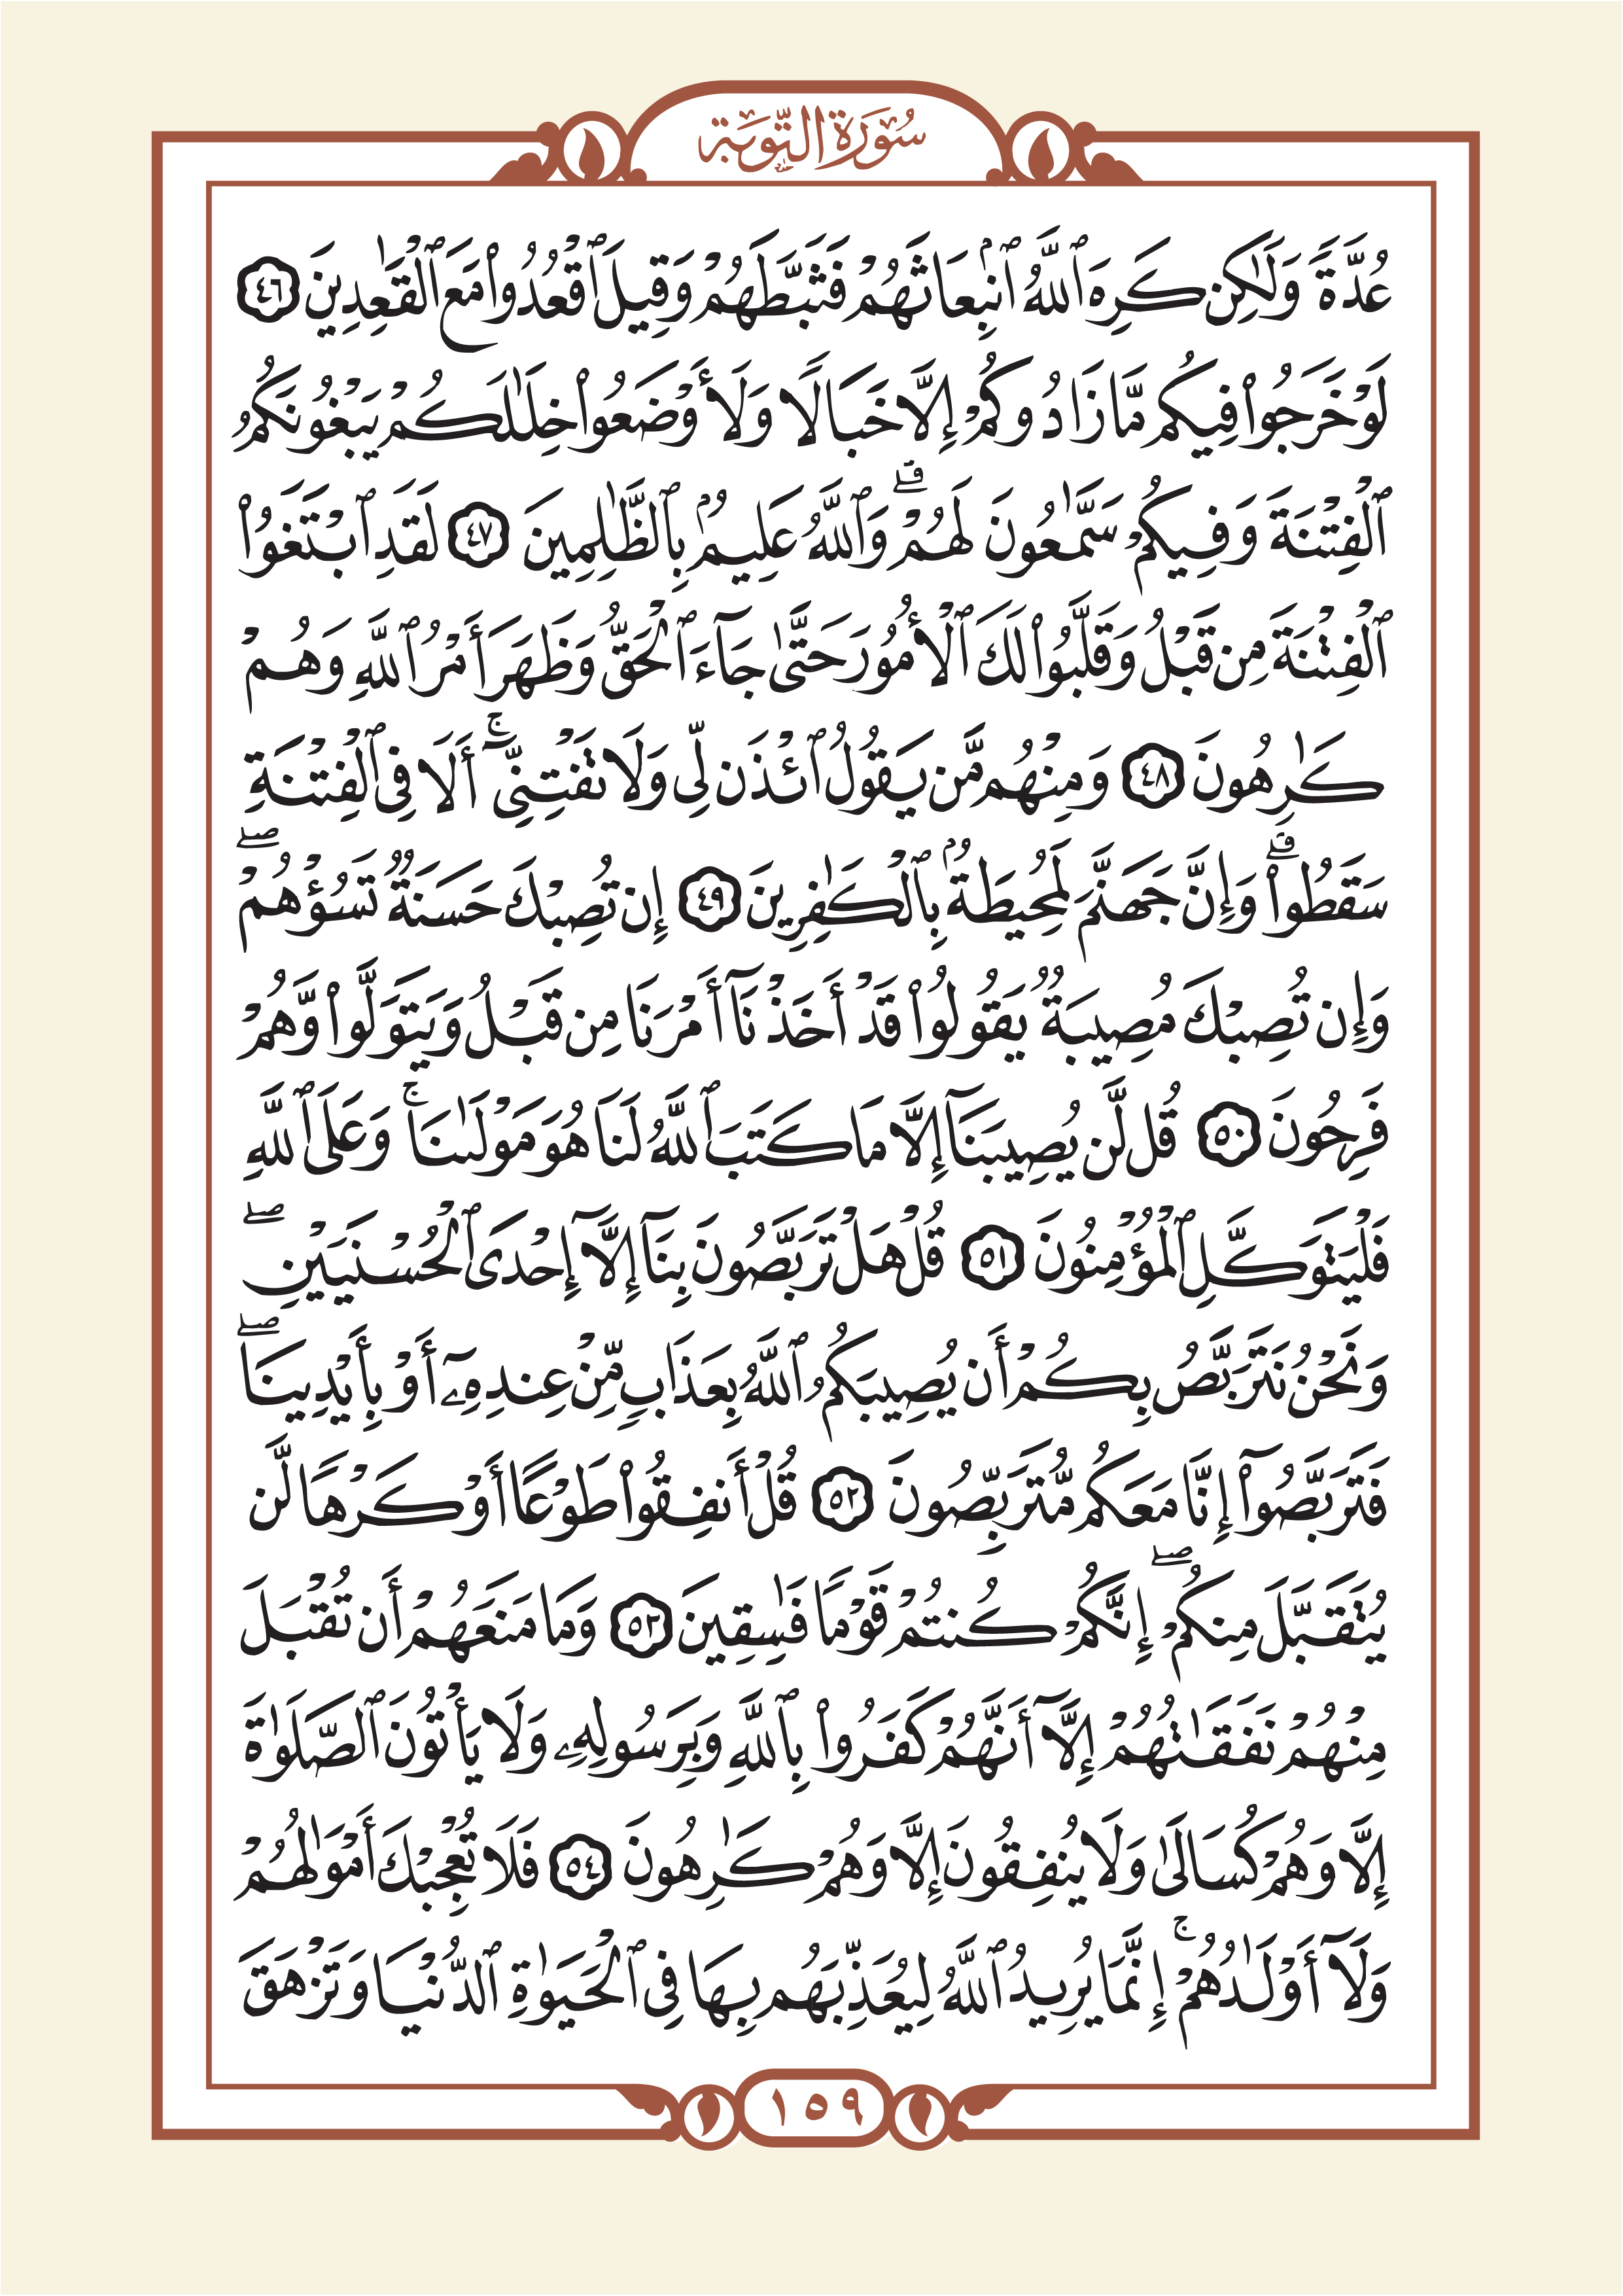 سُورَةُ التَّوۡبَةِ
عُدَّةٗ وَلَٰكِن كَرِهَ ٱللَّهُ ٱنۢبِعَاثَهُمۡ فَثَبَّطَهُمۡ وَقِيلَ ٱقۡعُدُواْ مَعَ ٱلۡقَٰعِدِينَ ٤٦
لَوۡ خَرَجُواْ فِيكُم مَّا زَادُوكُمۡ إِلَّا خَبَالٗا وَلَأَوۡضَعُواْ خِلَٰلَكُمۡ يَبۡغُونَكُمُ
ٱلۡفِتۡنَةَ وَفِيكُمۡ سَمَّٰعُونَ لَهُمۡۗ وَٱللَّهُ عَلِيمُۢ بِٱلظَّٰلِمِينَ ٤٧ لَقَدِ ٱبۡتَغَوُاْ
ٱلۡفِتۡنَةَ مِن قَبۡلُ وَقَلَّبُواْ لَكَ ٱلۡأُمُورَ حَتَّىٰ جَآءَ ٱلۡحَقُّ وَظَهَرَ أَمۡرُ ٱللَّهِ وَهُمۡ
كَٰرِهُونَ ٤٨ وَمِنۡهُم مَّن يَقُولُ ٱئۡذَن لِّي وَلَا تَفۡتِنِّيٓۚ أَلَا فِي ٱلۡفِتۡنَةِ
سَقَطُواْۗ وَإِنَّ جَهَنَّمَ لَمُحِيطَةُۢ بِٱلۡكَٰفِرِينَ ٤٩ إِن تُصِبۡكَ حَسَنَةٞ تَسُؤۡهُمۡۖ
وَإِن تُصِبۡكَ مُصِيبَةٞ يَقُولُواْ قَدۡ أَخَذۡنَآ أَمۡرَنَا مِن قَبۡلُ وَيَتَوَلَّواْ وَّهُمۡ
فَرِحُونَ ٥٠ قُل لَّن يُصِيبَنَآ إِلَّا مَا كَتَبَ ٱللَّهُ لَنَا هُوَ مَوۡلَىٰنَاۚ وَعَلَى ٱللَّهِ
فَلۡيَتَوَكَّلِ ٱلۡمُؤۡمِنُونَ ٥١ قُلۡ هَلۡ تَرَبَّصُونَ بِنَآ إِلَّآ إِحۡدَى ٱلۡحُسۡنَيَيۡنِۖ
وَنَحۡنُ نَتَرَبَّصُ بِكُمۡ أَن يُصِيبَكُمُ ٱللَّهُ بِعَذَابٖ مِّنۡ عِندِهِۦٓ أَوۡ بِأَيۡدِينَاۖ
فَتَرَبَّصُوٓاْ إِنَّا مَعَكُم مُّتَرَبِّصُونَ ٥٢ قُلۡ أَنفِقُواْ طَوۡعًا أَوۡ كَرۡهٗا لَّن
يُتَقَبَّلَ مِنكُمۡۖ إِنَّكُمۡ كُنتُمۡ قَوۡمٗا فَٰسِقِينَ ٥٣ وَمَا مَنَعَهُمۡ أَن تُقۡبَلَ
مِنۡهُمۡ نَفَقَٰتُهُمۡ إِلَّآ أَنَّهُمۡ كَفَرُواْ بِٱللَّهِ وَبِرَسُولِهِۦ وَلَا يَأۡتُونَ ٱلصَّلَوٰةَ
إِلَّا وَهُمۡ كُسَالَىٰ وَلَا يُنفِقُونَ إِلَّا وَهُمۡ كَٰرِهُونَ ٥٤ فَلَا تُعۡجِبۡكَ أَمۡوَٰلُهُمۡ
وَلَآ أَوۡلَٰدُهُمۡۚ إِنَّمَا يُرِيدُ ٱللَّهُ لِيُعَذِّبَهُم بِهَا فِي ٱلۡحَيَوٰةِ ٱلدُّنۡيَا وَتَزۡهَقَ
١٥٩